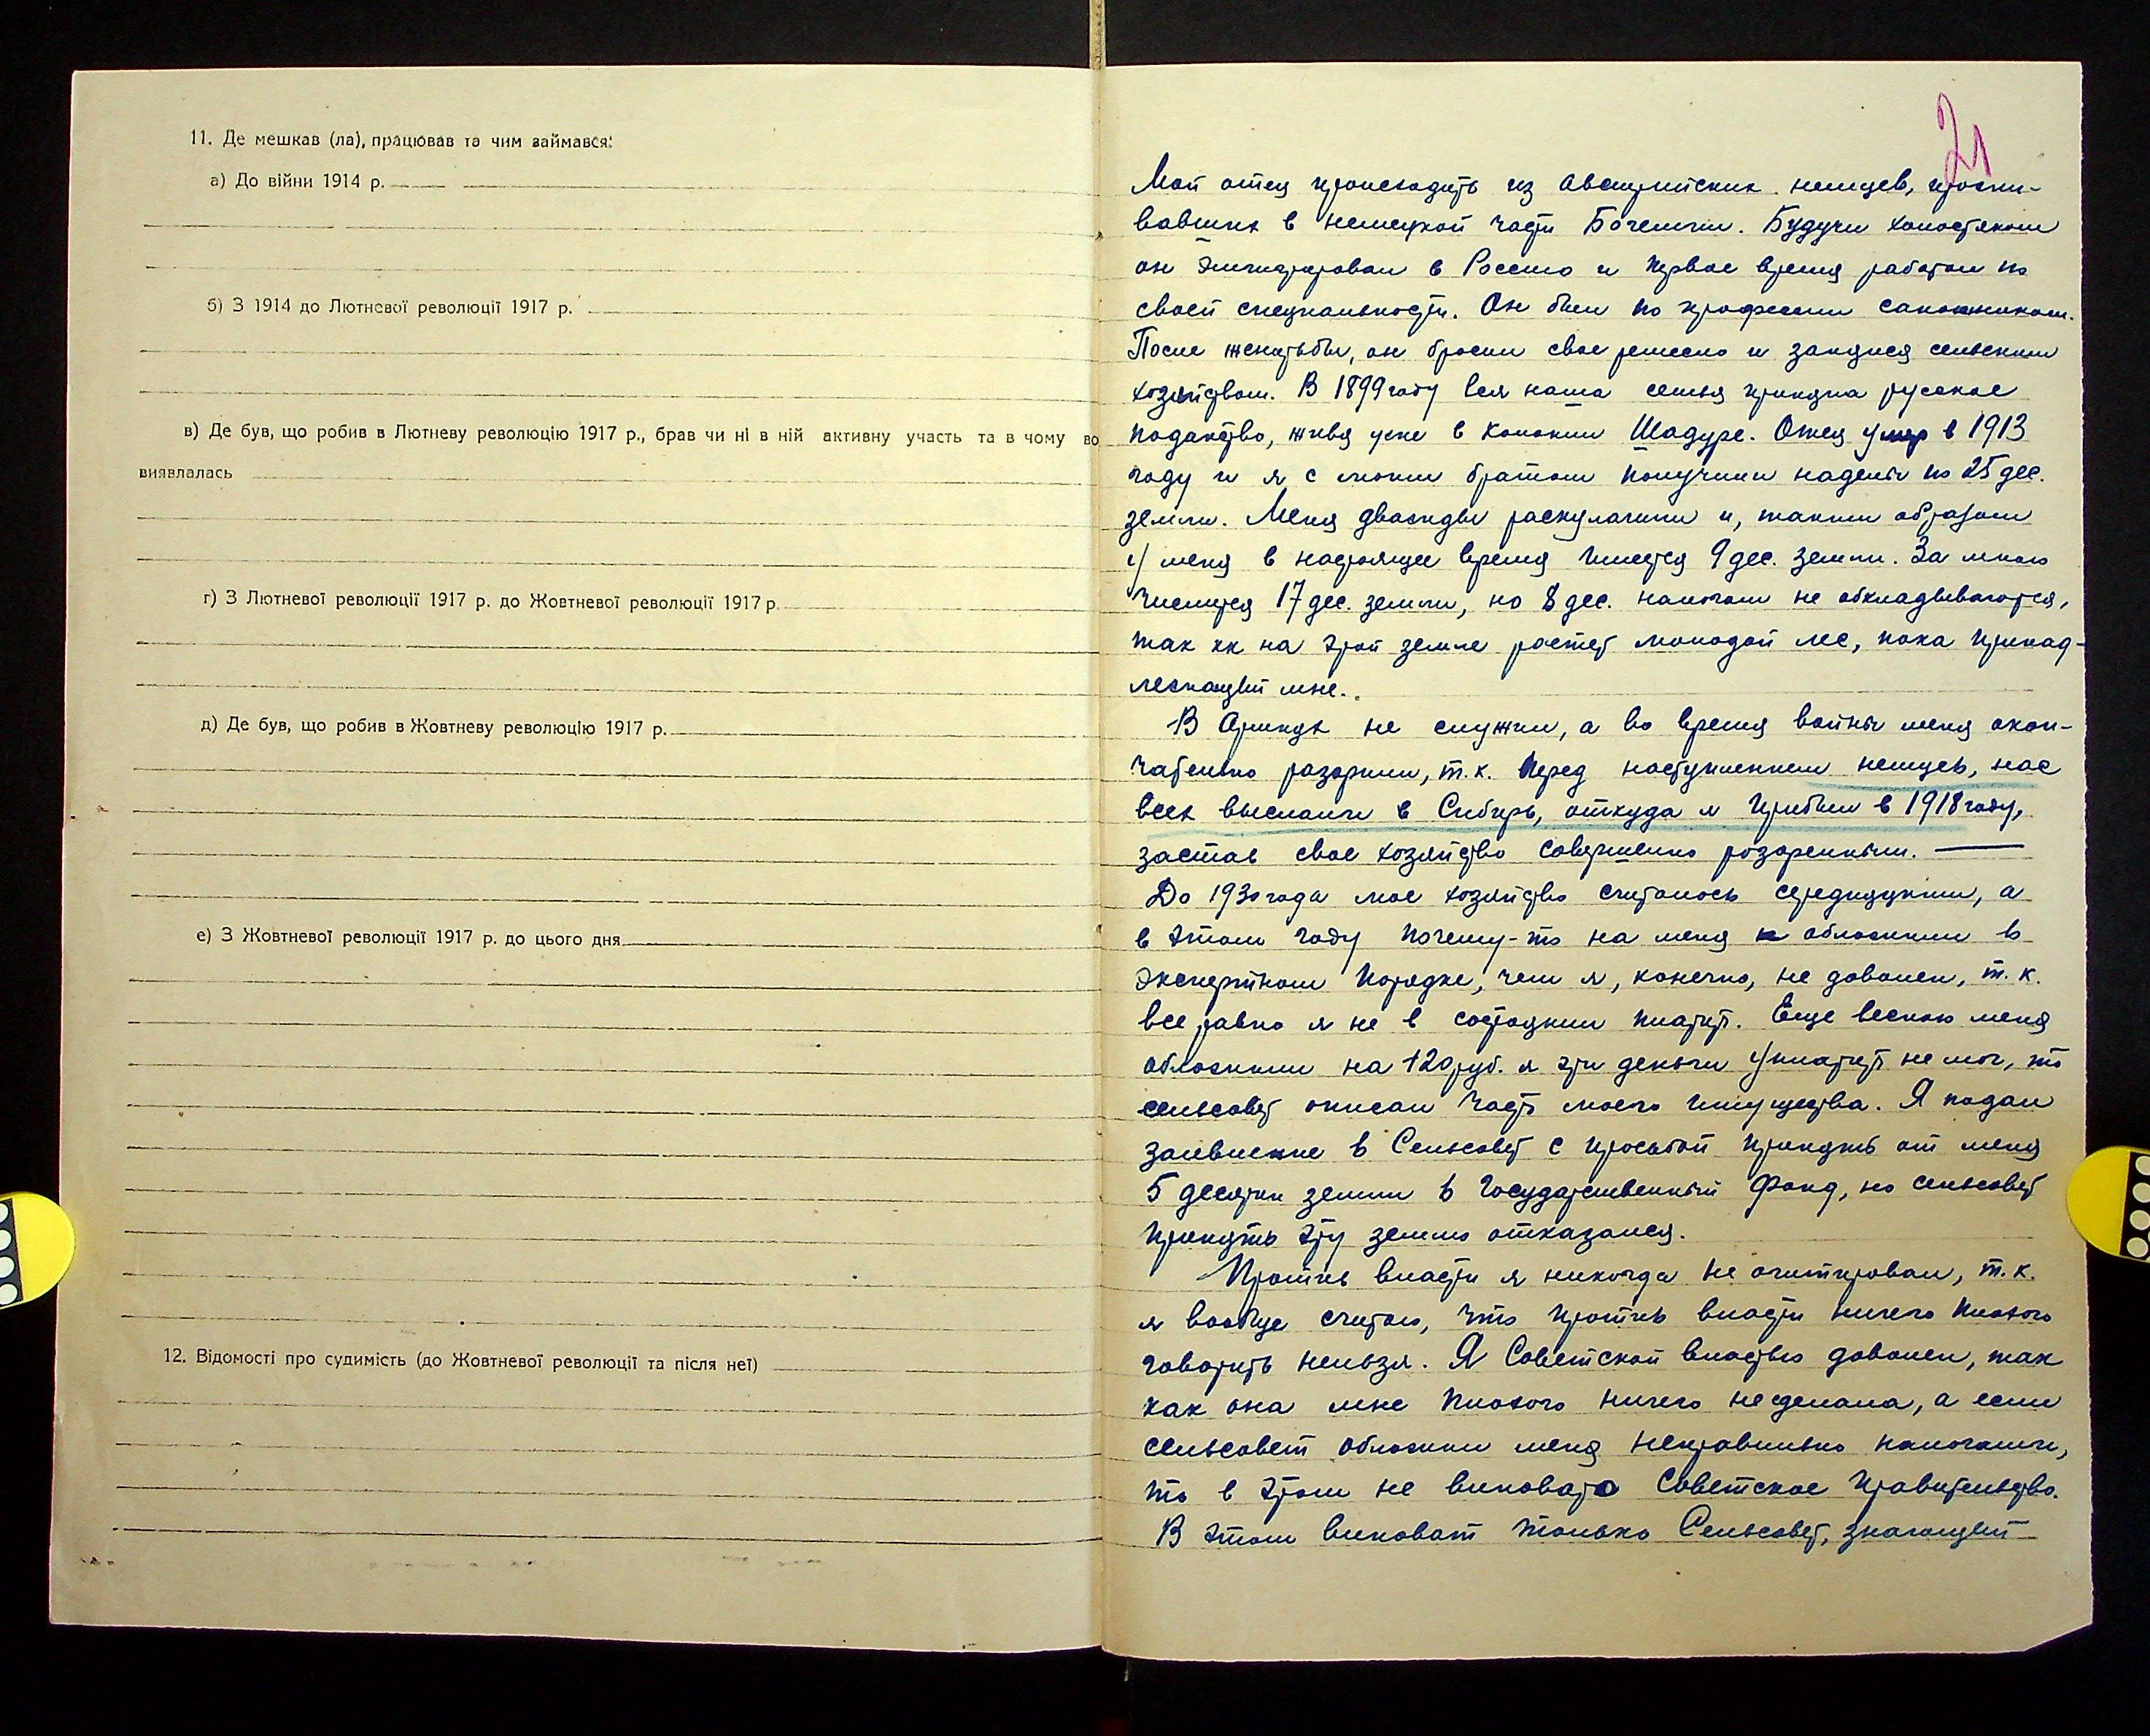 11. Де мешкав (ла), працював та чим займався:
а) До війни 1914 р.
б) З 1914 до Лютневої революції 1917 р.
в) Де був, що робив в Лютневу революцію 1917 р., брав чи ні в ній активну участь та в чому во
виявлалась
г) З Лютневої революції 1917 р. до Жовтневої революції 1917 р.
д) Де був, що робив в Жовтневу революцію 1917 р.
е) З Жовтневої революції 1917 р. до цього дня
12. Відомості про судимість (до Жовтневої революції та після неї)
21
Мой отец происходить из австрийских немцев, прожи-
вавших в немецкой части Богемии. Будучи холостяком
он эмигрировал в Россию и первое время работал по
своей специальности. Он был по профессии сапожником.
После женитьбы, он бросил свое ремесло и занялся сельским
хозяйством. В 1899 году вся наша семья приняла русское
поданство, живя уже в колонии Шадуре. Отец умер в 1913
году и я с моим братом получили наделы по 25 дес.
земли. Меня дважды раскулачили и, таким образом
у меня в настоящее время имеется 9 дес. земли. За мною
числится 17 дес. земли, но 8 дес. налогом не обкладываются,
так как на этой земле растет молодой лес, пока принад-
лежащий мне.
В армиях не служил, а во время войны меня окон-
чательно разорили, т.к. перед наступлением немцев, нас
всех выслали в Сибирь, откуда я прибыл в 1918 году,
застав свое хозяйство совершенно розоренным.
До 1930 года мое хозяйство считалось середняцким, а
в этом году почему-то на меня обложили в
экспертном порядке, чем я, конечно, не доволен, т.к.
все равно я не в состоянии платить. Еще весною меня
обложили на 120 руб. я эти деньги уплатить не мог, то
сельсовет описал часть моего имущества. Я подал
заявление в Сельсовет с просьбой принять от меня
5 десятин земли в Государственный фонд, но сельсовет
принять эту землю отказался.
Против власти я никогда не агитировал, т.к.
я вообще считаю, что против власти ничего плохого
говорить нельзя. Я Советской властью доволен, так
как она мне плохого ничего не сделала, а если
сельсовет обложил меня неправильно налогами,
то в этом не виновато Советское Правительство.
В этом виноват только Сельсовет, знающий